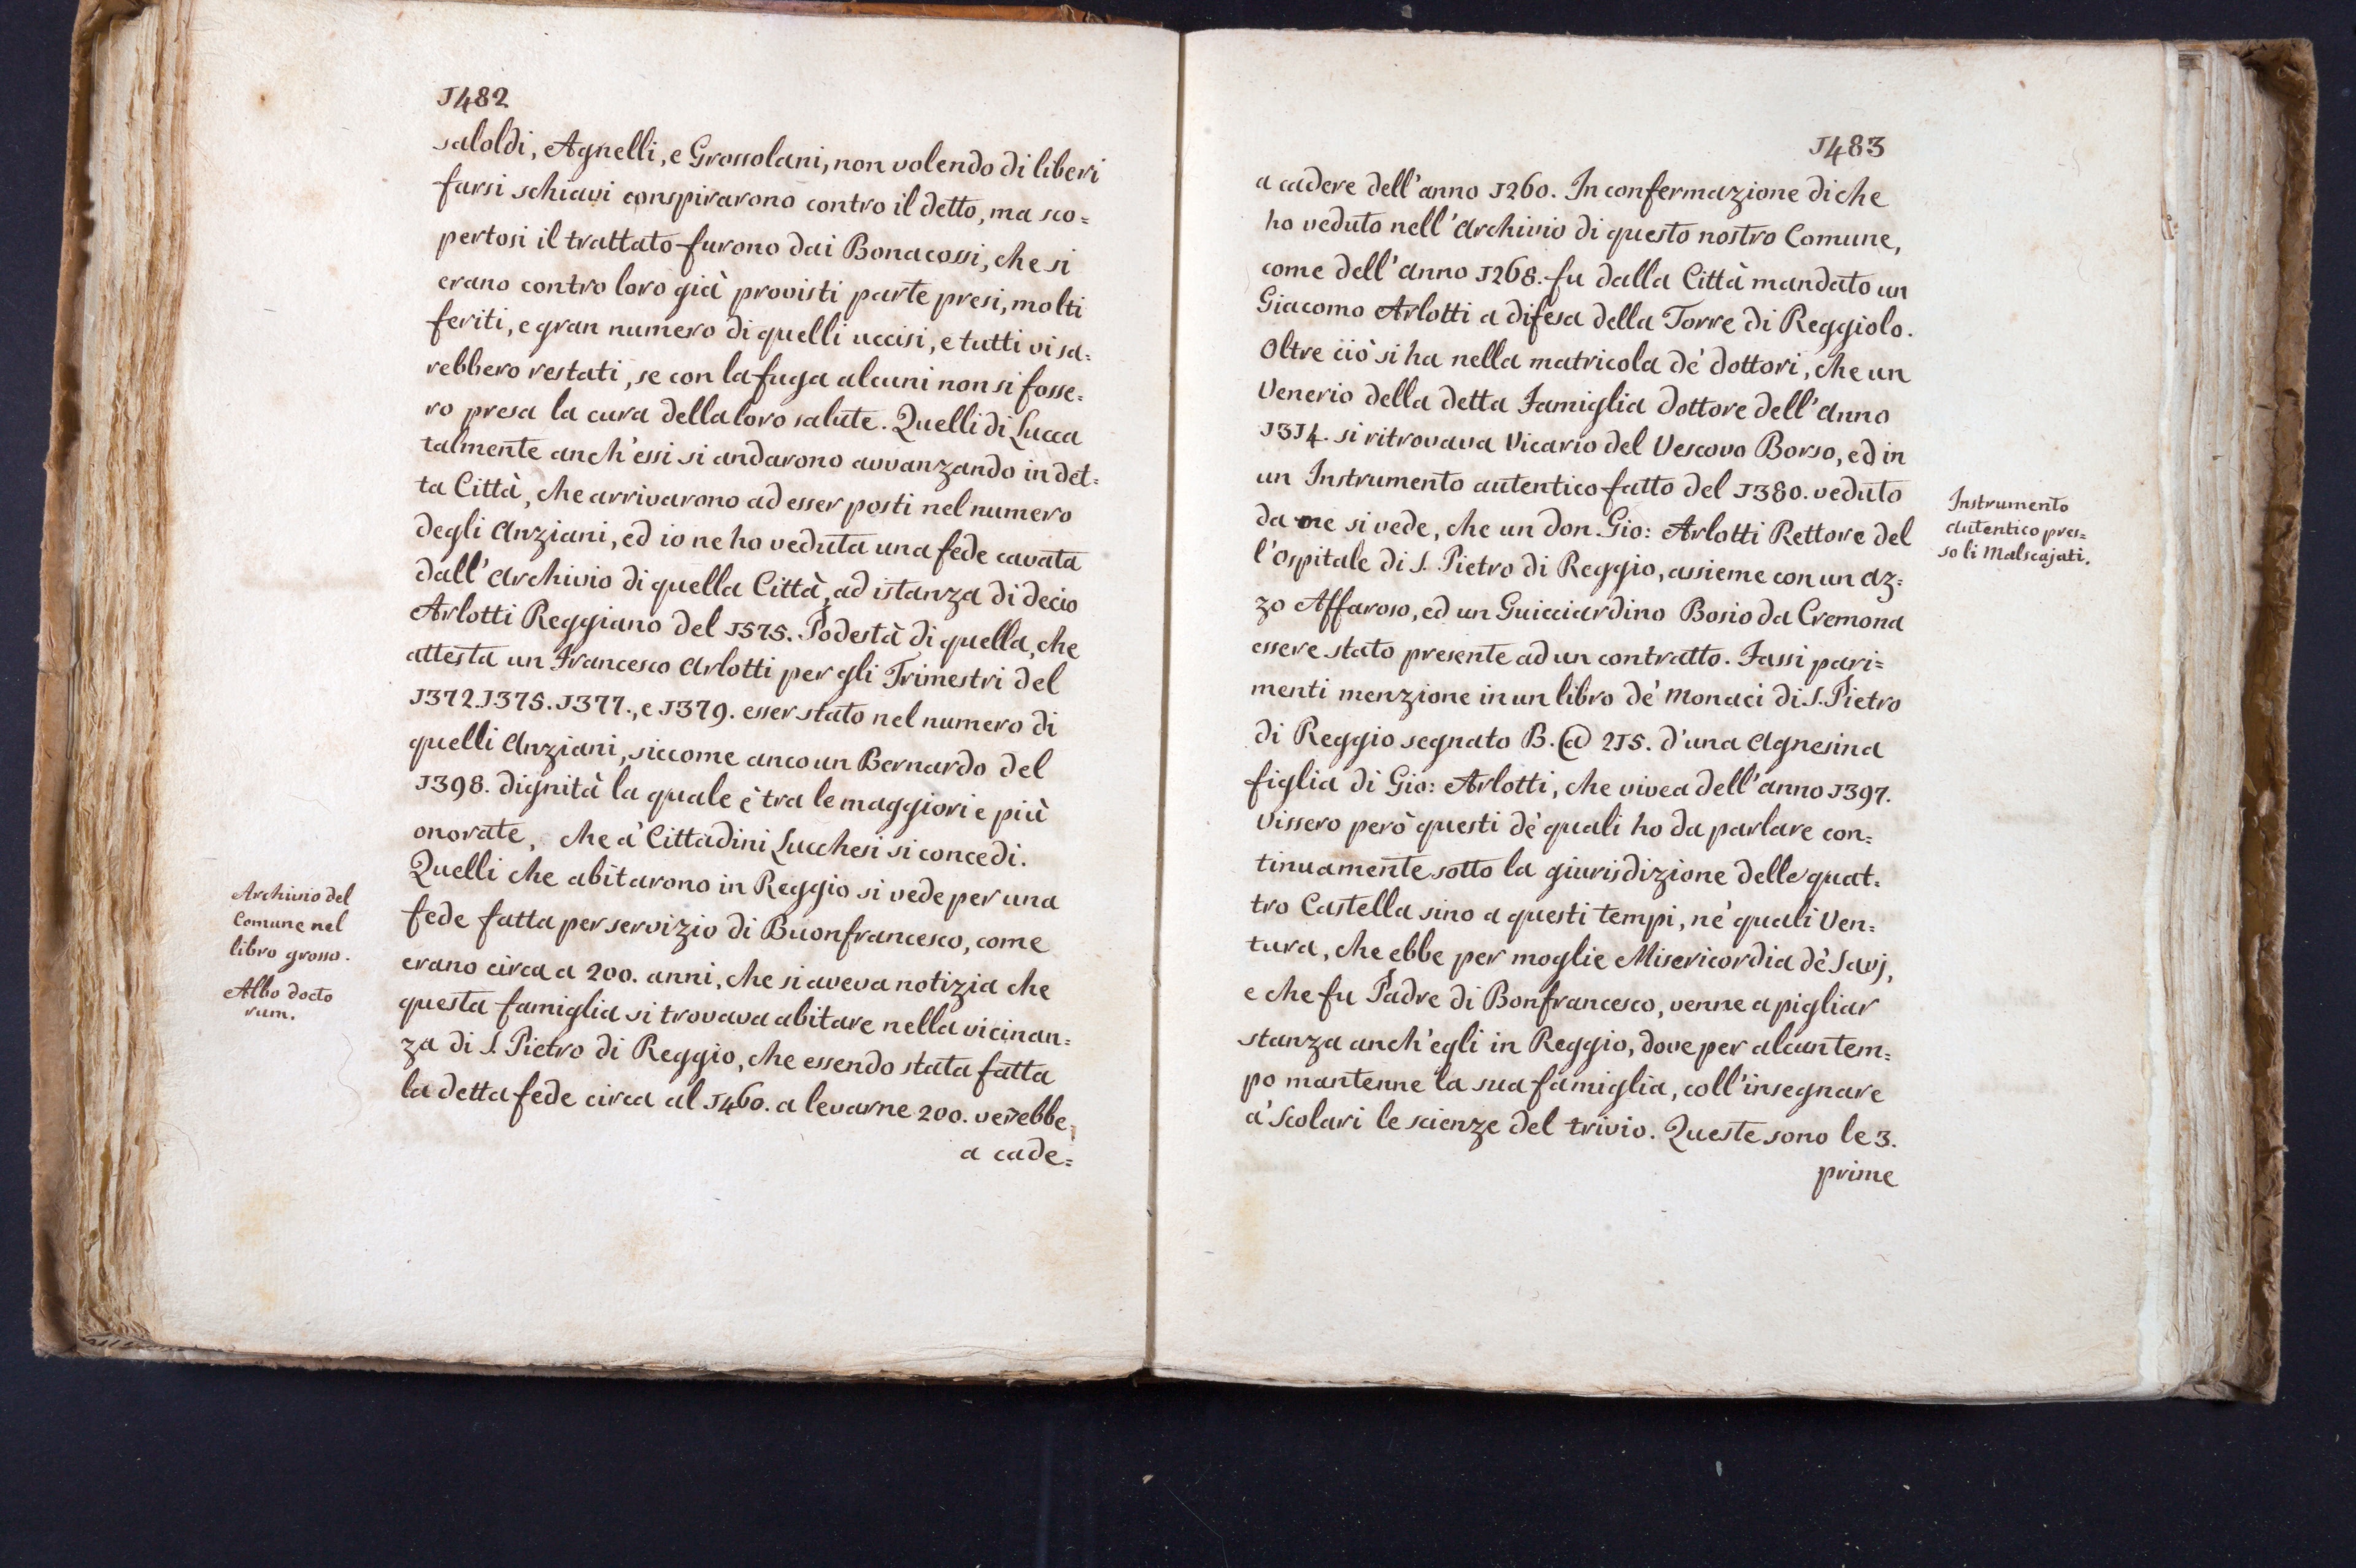 1482
saloldi, Agnelli, e Grossolani, non volendo di liberi
farsi schiavi conspirarono contro il detto, ma sco=
pertosi il trattato furono dai Bonacossi, che si
erano contro loro già provisti parte presi, molti
feriti, e gran numero di quelli uccisi, e tutti vi sa=
rebbero restati, se con la fuga alcuni non si fosse=
ro presa la cura della loro salute. Quelli di Lucca
talmente anch'essi si andarono avvanzando in det=
ta Città, che arrivarono ad esser posti nel numero
degli Anziani, ed io ne ho veduta una fede cavata
dall'Archivio di quella Città, ad istanza di Decio
Arlotti Reggiano del 1575. Podestà di quella, che
attesta un Francesco Arlotti per gli Trimestri del
1372.1375.1377., e 1379. esser stato nel numero di
quelli Anziani, siccome anco un Bernardo del
1398. dignità la quale è tra le maggiori e più
onorate, che a' Cittadini Lucchesi si concedi.
Quelli che abitarono in Reggio si vede per una
fede fatta per servizio di Buonfrancesco, come
erano circa a 200. anni, che si aveva notizia che
questa famiglia si trovava abitare nella vicinan=
za di S. Pietro di Reggio, che essendo stata fatta
la detta fede circa al 1460. a levarne 200. verebbe
a cade=
Archivio del
Comune nel
libro grosso.
Albo docto
rum.
1483
a cadere dell'anno 1260. In confermazione di che
ho veduto nell'Archivio di questo nostro Comune,
come dell'anno 1268. fu dalla Città mandato un
Giacomo Arlotti a difesa della Torre di Reggiolo.
Oltre ciò si ha nella matricola de' dottori, che un
Venerio della detta Famiglia dottore dell'anno
1314. si ritrovava Vicario del Vescovo Borso, ed in
un Instrumento autentico fatto del 1380. veduto
da me si vede, che un don Gio: Arlotti Rettore del
l'Ospitale di S. Pietro di Reggio, assieme con un Az=
zo Affaroso, ed un Guicciardino Bosio da Cremona
essere stato presente ad un contratto. Fassi pari=
menti menzione in un libro de' Monaci di S. Pietro
di Reggio segnato B. @ 215. d'una Agnesina
figlia di Gio: Arlotti, che vivea dell'anno 1397.
Vissero però questi de' quali ho da parlare con=
tinuamente sotto la giurisdizione delle quat=
tro Castella sino a questi tempi, ne' quali Ven=
tura, che ebbe per moglie Misericordia de' Savj,
e che fu Padre di Bonfrancesco, venne a pigliar
stanza anch'egli in Reggio, dove per alcun tem=
po mantenne la sua famiglia, coll'insegnare
a' Scolari le scienze del trivio. Queste sono le 3.
prime
Instrumento
autentico pres=
so li Malscajati.